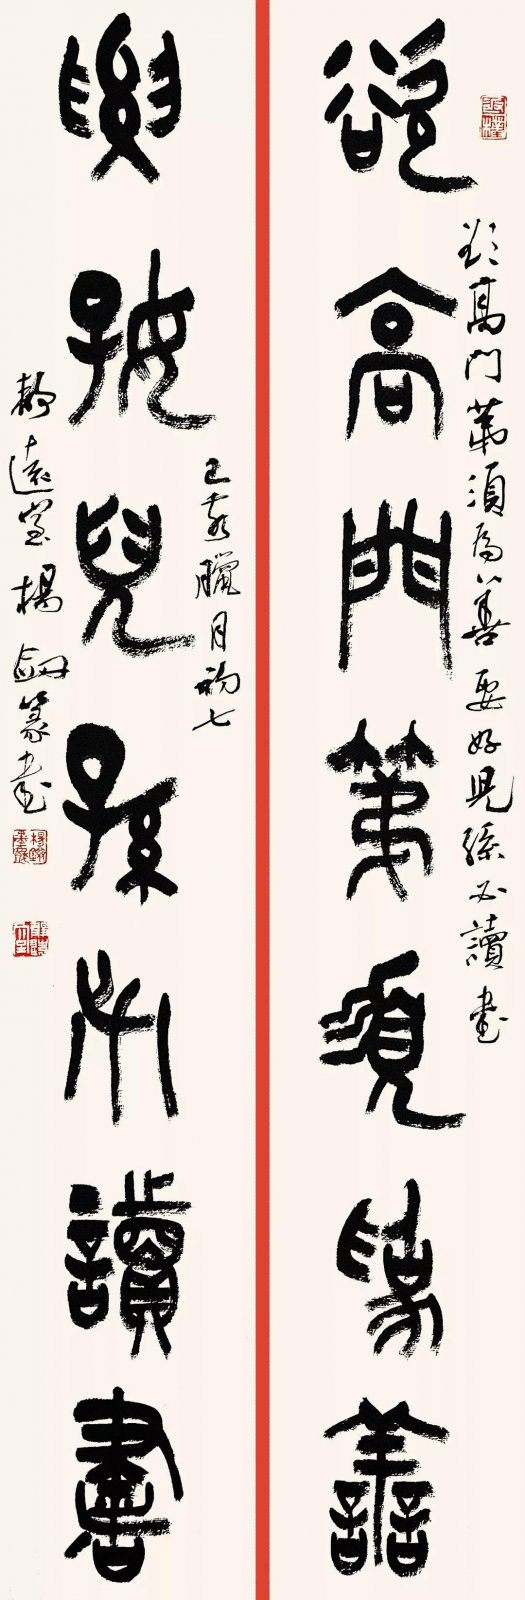 欲高門第須為善
要好兒孫必讀書
欲高門第須為善要好兒孫必讀書
己亥臘月初七
靜遠堂楊劍篆書